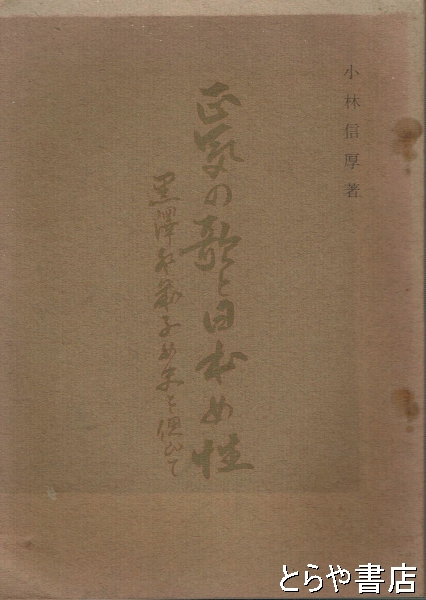 小林信厚著
正気の歌と日本女性
黒澤登幾子女史を偲びて
とらや書店